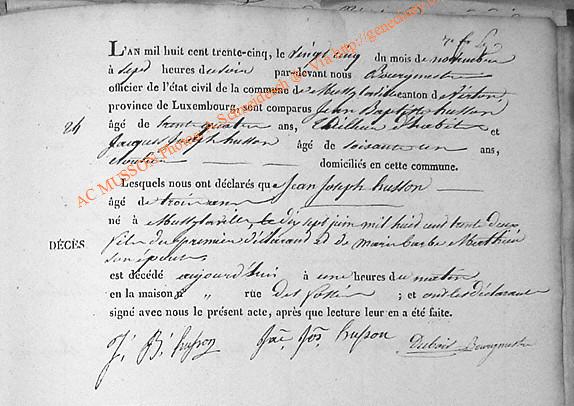 L'AN mil huit cent trente-cinq, le vingt cinq du mois de novembre
à sept heures du soir par-devant nous Bourgmestre
officier de l'état civil de la commune de Mussy la ville canton de Virton,
province de Luxembourg, sont comparus Jean Baptiste husson
24 âgé de trente quatre ans, et
Jacques Joseph husson âgé de soixante un ans,
domiciliés en cette commune.
Lesquels nous ont déclarés que Jean Joseph husson
âgé de trois ans
DÉCÈS né à Mussy la ville, le dix sept juin mil huit cent trente deux
fils du premier déclarant et de marie barbe Mathieu
son épouse
est décédé aujourd'hui à une heures du matin
en la maison n° " rue des fossés ; et ont les déclarants
signé avec nous le présent acte, après que lecture leur en a été faite.
J. B. husson Jac Jos husson Dubois Bourgmestre
AC MUSSON Photos A. Schneidesch © - Via http://genedinary.be